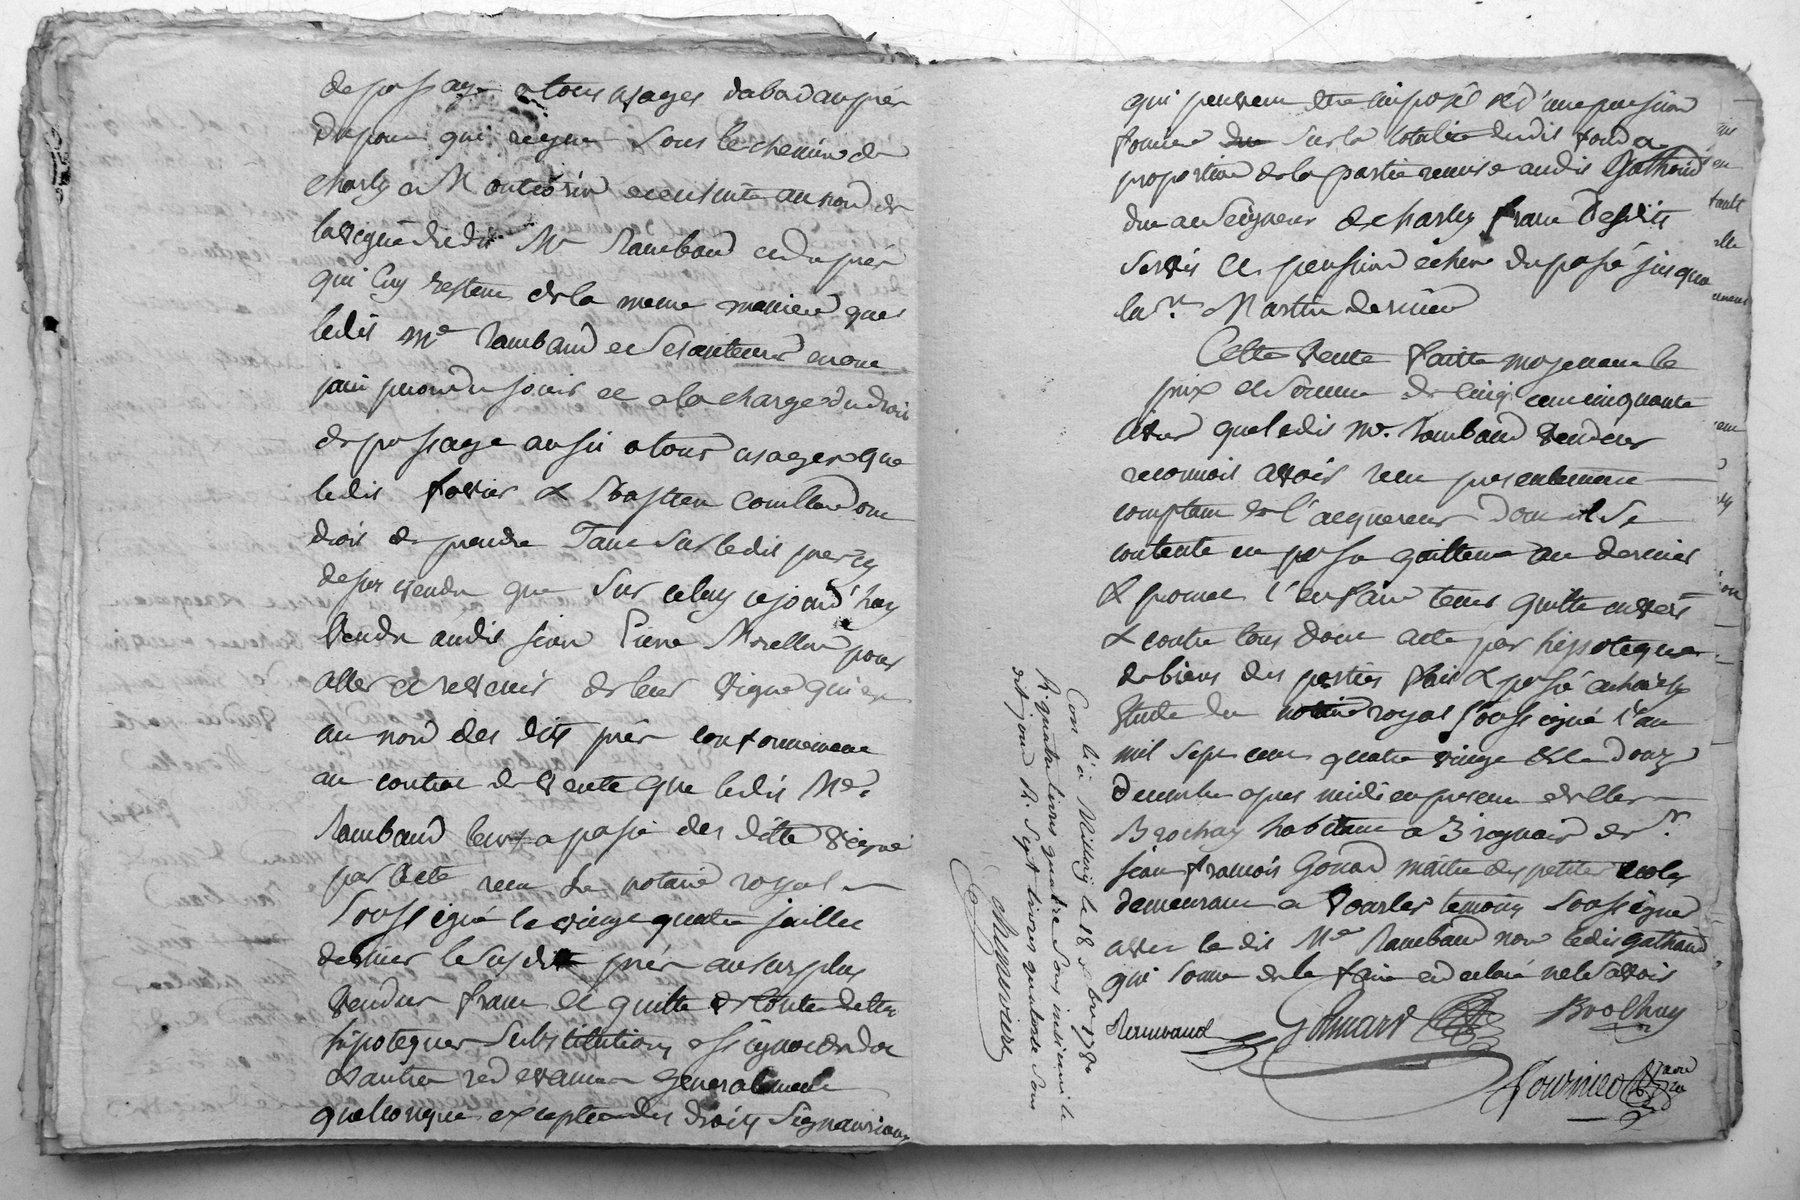 de passage a tous usages dabord au pré
du pour qui reigne sous le chemin de
charly a Montcorin ensuite au nord de
la vigne dudit Me Rambaud et du pré
qui luy restent de la meme maniere que
ledit Me Rambaud et ses auteurs en ont
joui pu ou du jouir et a la charge du droit
de passage aussi a tous usages que
ledit favier & Sbastien Coulland ont
droit de prendre Tant sur ledit pré cy
depuis vendu que sur celuy cejourd'huy
vendu audit sieur Pierre Morellon pour
aller et revenir de leur vigne qui est
au nord des dits prés conformement
au contrat de vente que ledit Me.
Rambaud leur a passé des dittes vignes
par acte recu du notaire royal
soussigné le vingt quatre juillet
dernier le susdit prés au surplus
vendus franc et quitte de toutes dettes
hipoteques substitutions
et autres redevances generalement
quelconques exceptes des droits Signauriaux
qui peuvent etre imposés & d'une pension
fonciere due sur la totalité dudit fond a
proportion de la partie remise audit Gathaud
due au Seigneur de charly franc desdits
servis et pension echus du passé jusqua
la st. Martin derniere
Cette vente faitte moyennant le
prix et somme de cinq cent cinquante
livres que ledit Me. Rambaud vendeur
reconnoit avoir recu presentement
comptant de l'acquereur dont il se
contente en passe quittance au dernier
& promet l'en faire tenir quitte envers
& contre tous dont acte par hippoteques
de biens des parties fait & passé a charly
Etude du notaire royal soussigné l'an
mil sept cent quatre vingt & le douze
decembre apres midi en presence de
Brochay habitant a Brignais & sr.
jean francois Gonard maitre des petites ecoles
demeurant a vourles temoins soussignés
avec le dit Me Rambaud non ledit Gathaud
qui somme de le faire a declaré ne le savoir
Rambaud Gonard Brochay
fournier
Con le a Millery le 18 xbre 1780
R. quatre livres quatre sous insinué le
dit jour R. Sept livres quatorze sous